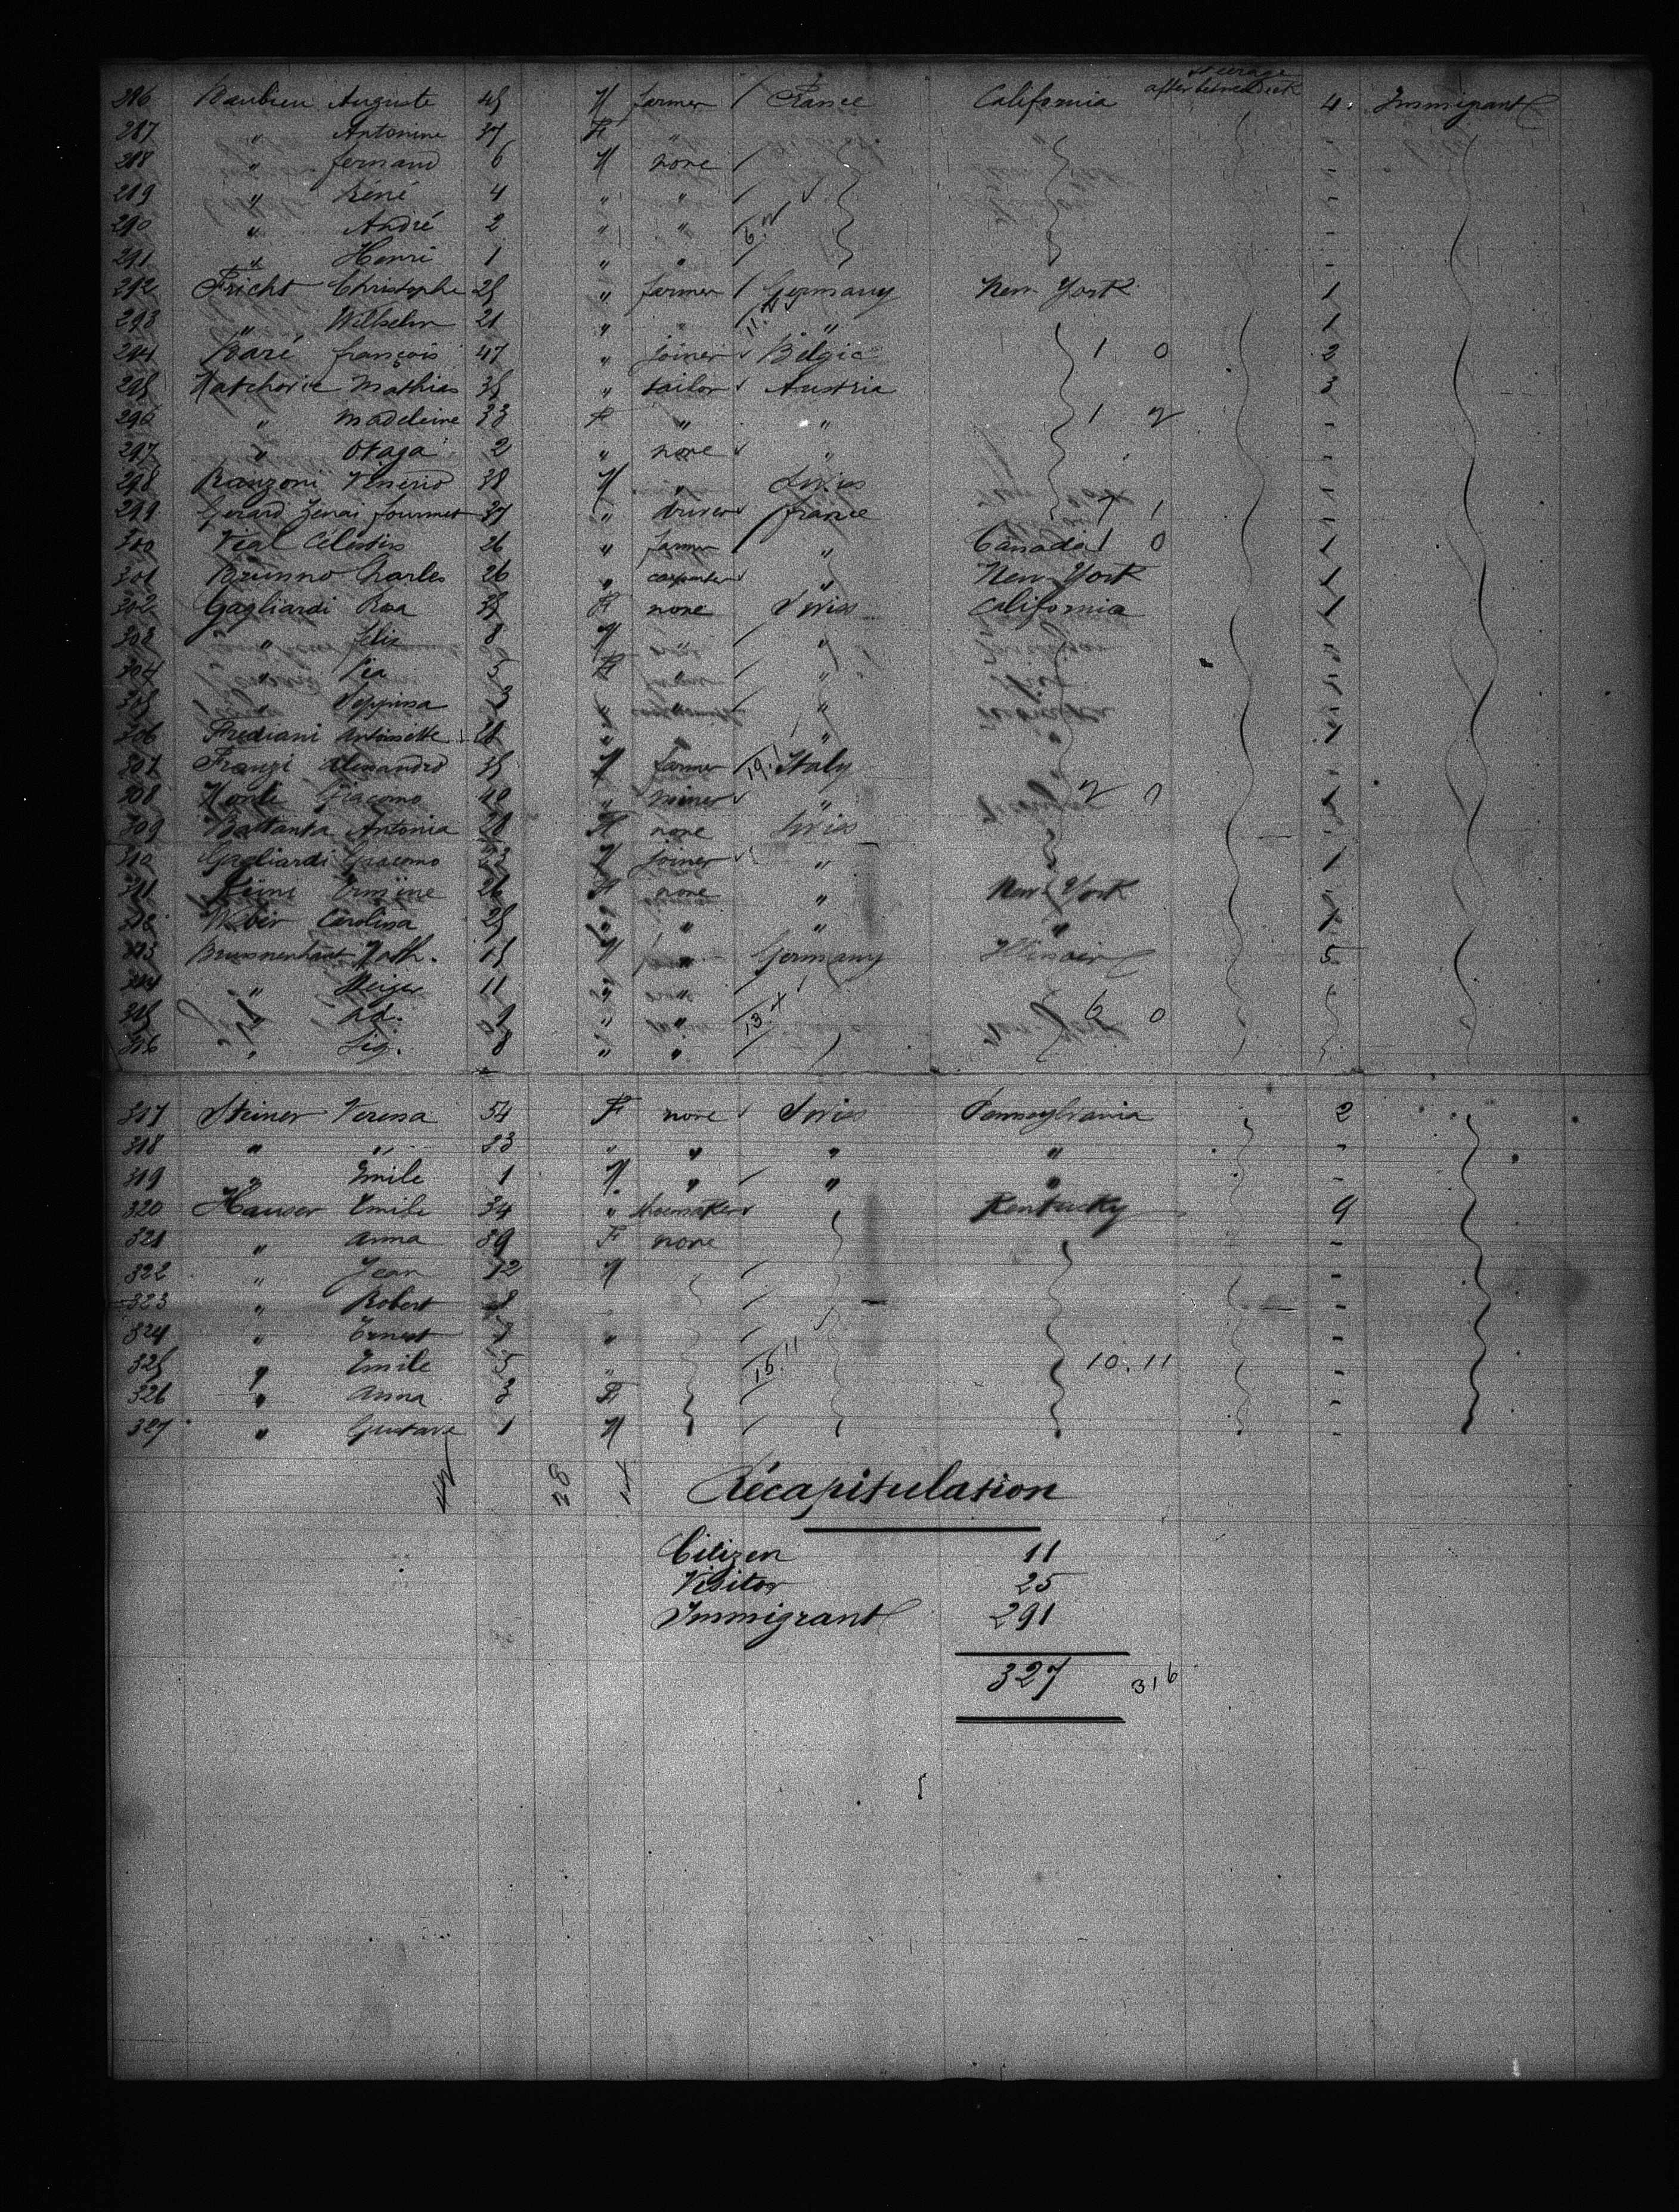 steerage
286 Baubieu Auguste 45 M farmer / France California after between deck 4. Immigrant
287 " Antonine 37 F "  -
288 " fernand 6 M none / -
289 " Réné 4 " " / -
290 " André 2 " " 6. -
291 " Henri 1 " " / -
292 Fricht Christophe 25 " farmer / Germany New York 1
293 " Wilhelm 21 " " 11. " 1
294 Baré françois 47 " joiner Belgic 1 0 2
295 Mathias 35 " tailor Austria 3
296 " Madeleine 33 F " " 1 2 -
297 " 2 " none " -
298 Ranzoni 38 M " Swiss -
299 Gerard fourmet 37 " france 1
300 Vial Célestin 26 " farmer / " Canada 1 0 1
301 Charles 26 " carpenter " New York 1
302 Gagliardi Rosa 35 F none Swiss California 1
303 " felix 8 M / "
304 " Pia 5 F " / "
305 " Peppina 3 " " / "
306 Frediani Antoinette " " " 1
307 Franzi Alessandro 35 M farmer 19. Italy -
308 Giacomo 40 " miner " 2 0 1
309 Battanta Antonia 28 F none Swiss -
310 Gagliardi Giacomo 23 M joiner " 1
311 26 F none " New York
312 Carolina 25 " " " " 1
313 Math. 15 M " Germany 5
314 " 11 " " /
315 " Ad. " " 13 6 0
316 " Sig. 8 " "
317 Steiner Verena 54 F none Swiss Pennsylvania 2
318 " " 23 " " " " -
319 " Emile 1 M " / " " -
320 Hauser Emile 34 " shoemaker Kentucky 9
321 " Anna 39 F none -
322 " Jean 12 M / -
323 " Robert 8 / -
324 " Ernest 7 " / -
325 " Emile 5 " 16. 10. 11 -
326 " Anna 3 F / -
327 " Gustave 1 M / -
28
Récapitulation
Citizen 11
Visitor 25
Immigrant 291
327 316